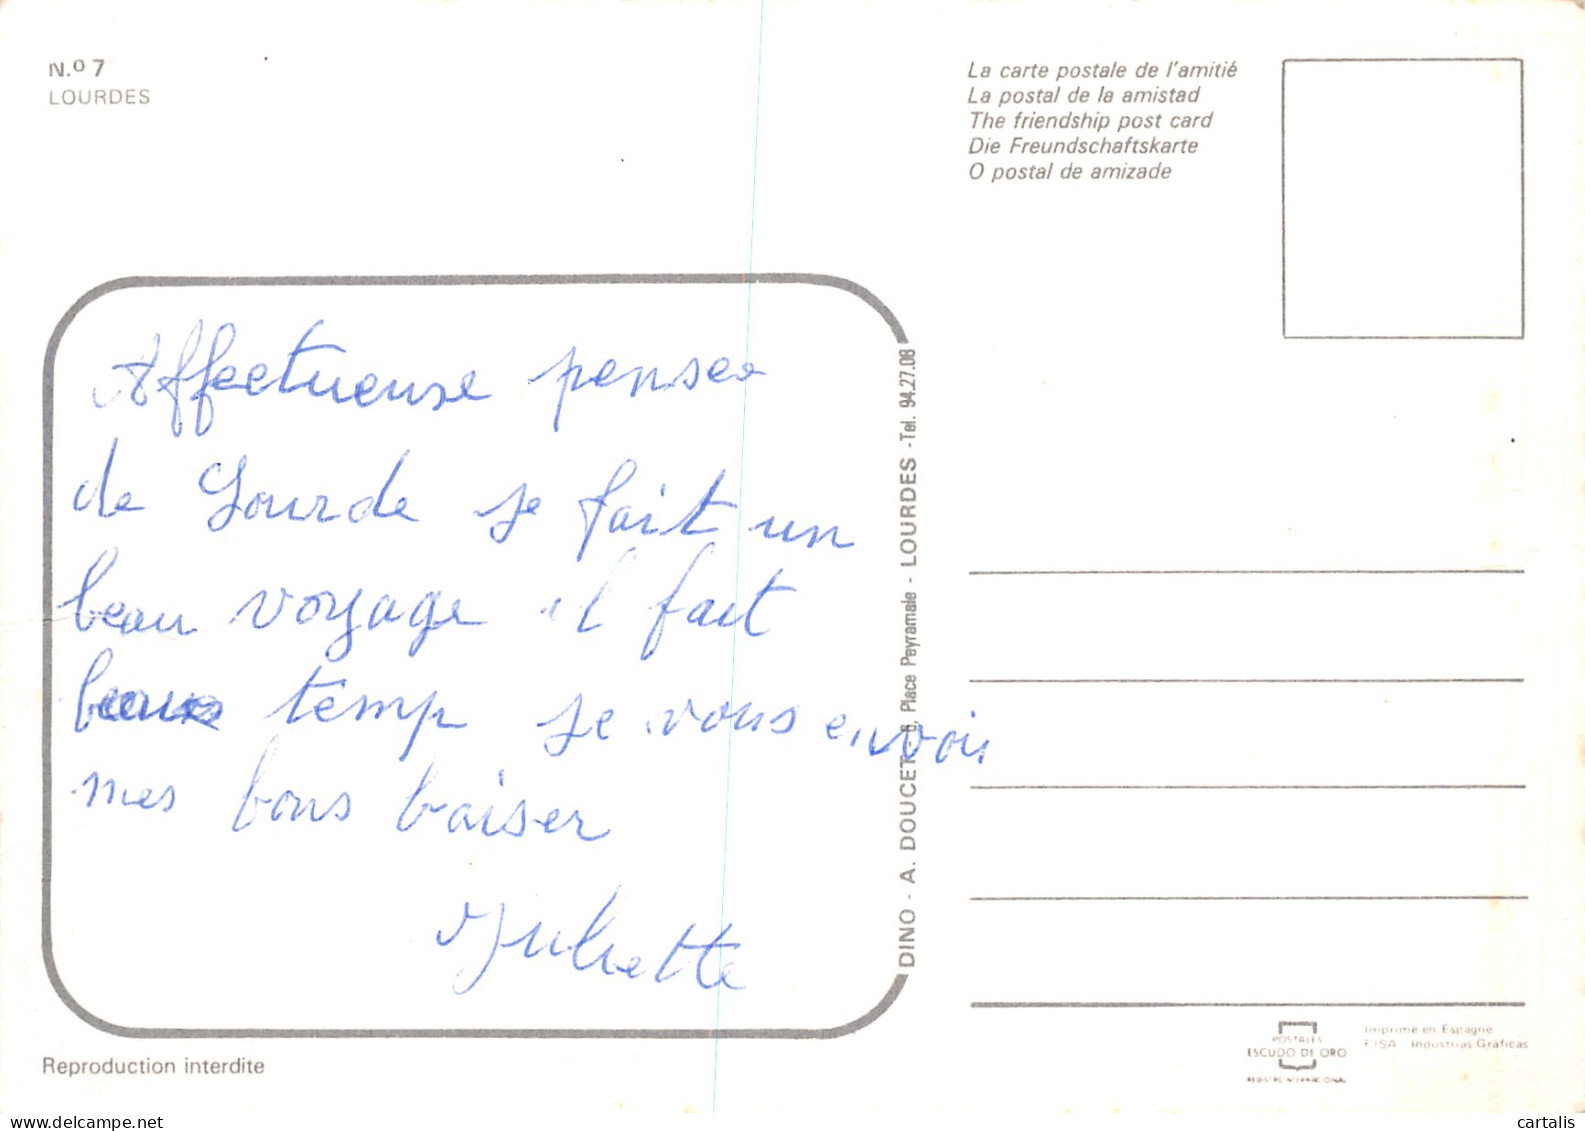 N.º 7
LOURDES
La carte postale de l'amitié
La postal de la amistad
The friendship post card
Die Freundschaftskarte
O postal de amizade
Affectueuse pensee
de Lourde je fait un
beau voyage il fait
beau temp je vous envoi
mes bons baiser
Juliette
DINO - A. DOUCET - 8, Place Peyramale - LOURDES - Tel. 94.27.08
Reproduction interdite
POSTALES
ESCUDO DE ORO
REGISTRO INTERNACIONAL
Imprimé en Espagne
FISA Industrias Gráficas
delcampe.net
cartalis